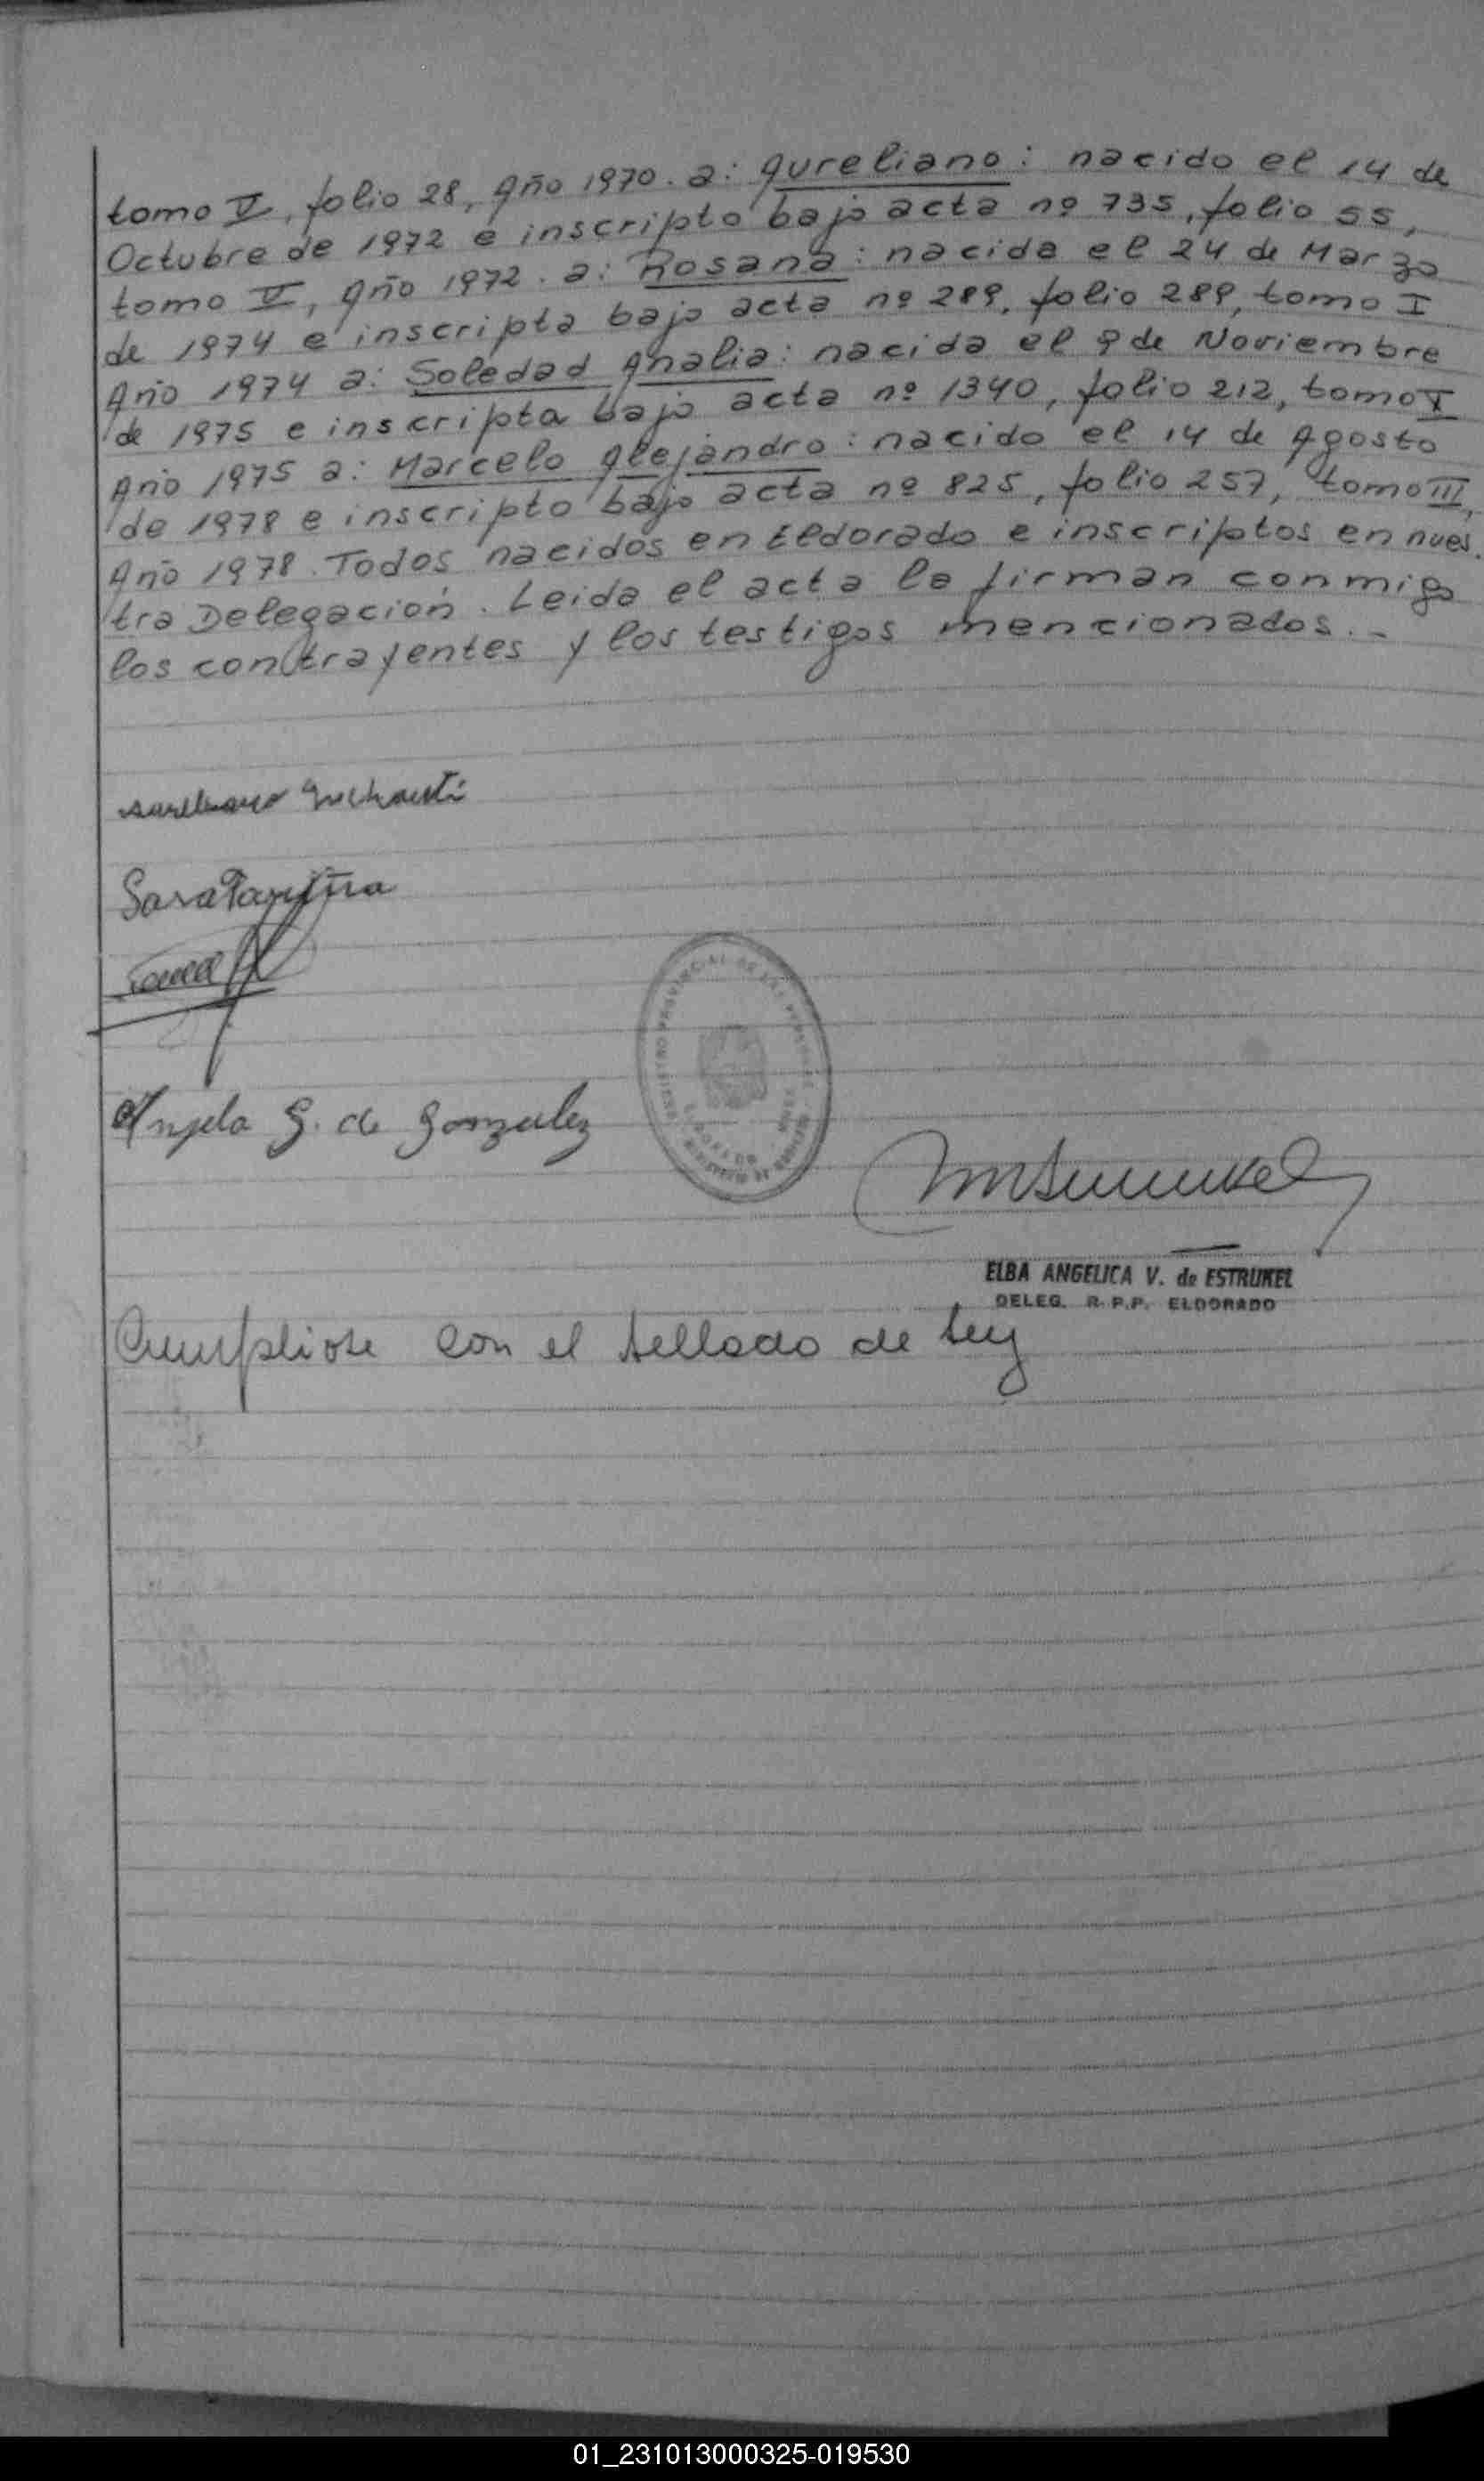 tomo V, folio 28, Año 1970. a: Aureliano: nacido el 14 de
Octubre de 1972 e inscripto bajo acta nº 735, folio 55,
tomo V, Año 1972. a: Rosana: nacida el 24 de Marzo
de 1974 e inscripta bajo acta nº 289, folio 289, tomo I
Año 1974 a: Soledad Analia: nacida el 9 de Noviembre
de 1975 e inscripta bajo acta nº 1340, folio 212, tomo V
Año 1975 a: Marcelo Alejandro: nacido el 14 de Agosto
de 1978 e inscripto bajo acta nº 825, folio 257, tomo III,
Año 1978. Todos nacidos en Eldorado e inscriptos en nues
tra Delegación. Leida el acta la firman conmigo
los contrayentes y los testigos mencionados.-
Aureliano
Sara
Angela G. de Gonzalez
REGISTRO PROVINCIAL DE LAS PERSONAS
ELBA ANGELICA V. de ESTRUKEL
DELEG. R. P.P. ELDORADO
Cumpliose con el sellado de Ley
01_231013000325-019530